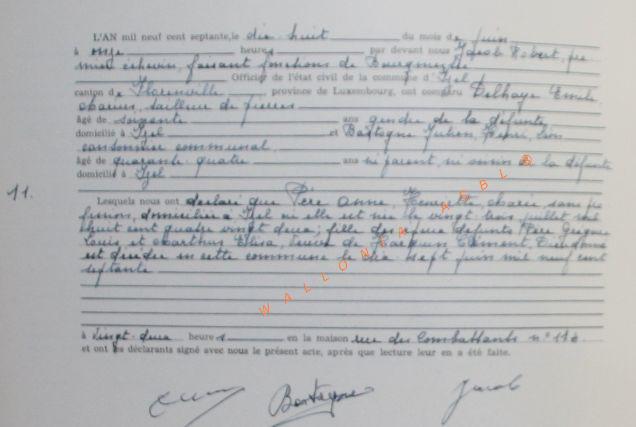 L'AN mil neuf cent septante, le dix-huit du mois de juin
à onze heures par devant nous Jacob Robert, pre-
mier échevin, faisant fonctions de Bourgmestre
Officier de l'état civil de la commune d'Izel
canton de Florenville province de Luxembourg, ont comparu Delhaye Emile
tailleur de pierres
âgé de soixante ans gendre de la défunte
domicilié à Izel et Bastogne Julien, Henri, Léon
cantonnier communal
âgé de quarante-quatre ans ni parent, ni voisin de la défunte
domicilié à Izel
11.
Lesquels nous ont déclaré que Père Anne, Henriette, sans pro-
fession, domiciliée à Izel où elle est née le vingt-trois juillet mil
huit cent quatre vingt deux; fille des époux défunts Père Grégoire
Louis et Elisa, veuve de Jacquin Clément, Dieudonné
est décédée en cette commune le dix-sept juin mil neuf cent
septante
à vingt-deux heures en la maison rue des Combattants n°
et ont les déclarants signé avec nous le présent acte, après que lecture leur en a été faite.
Bastogne Jacob
WALLONIA ASBL ©